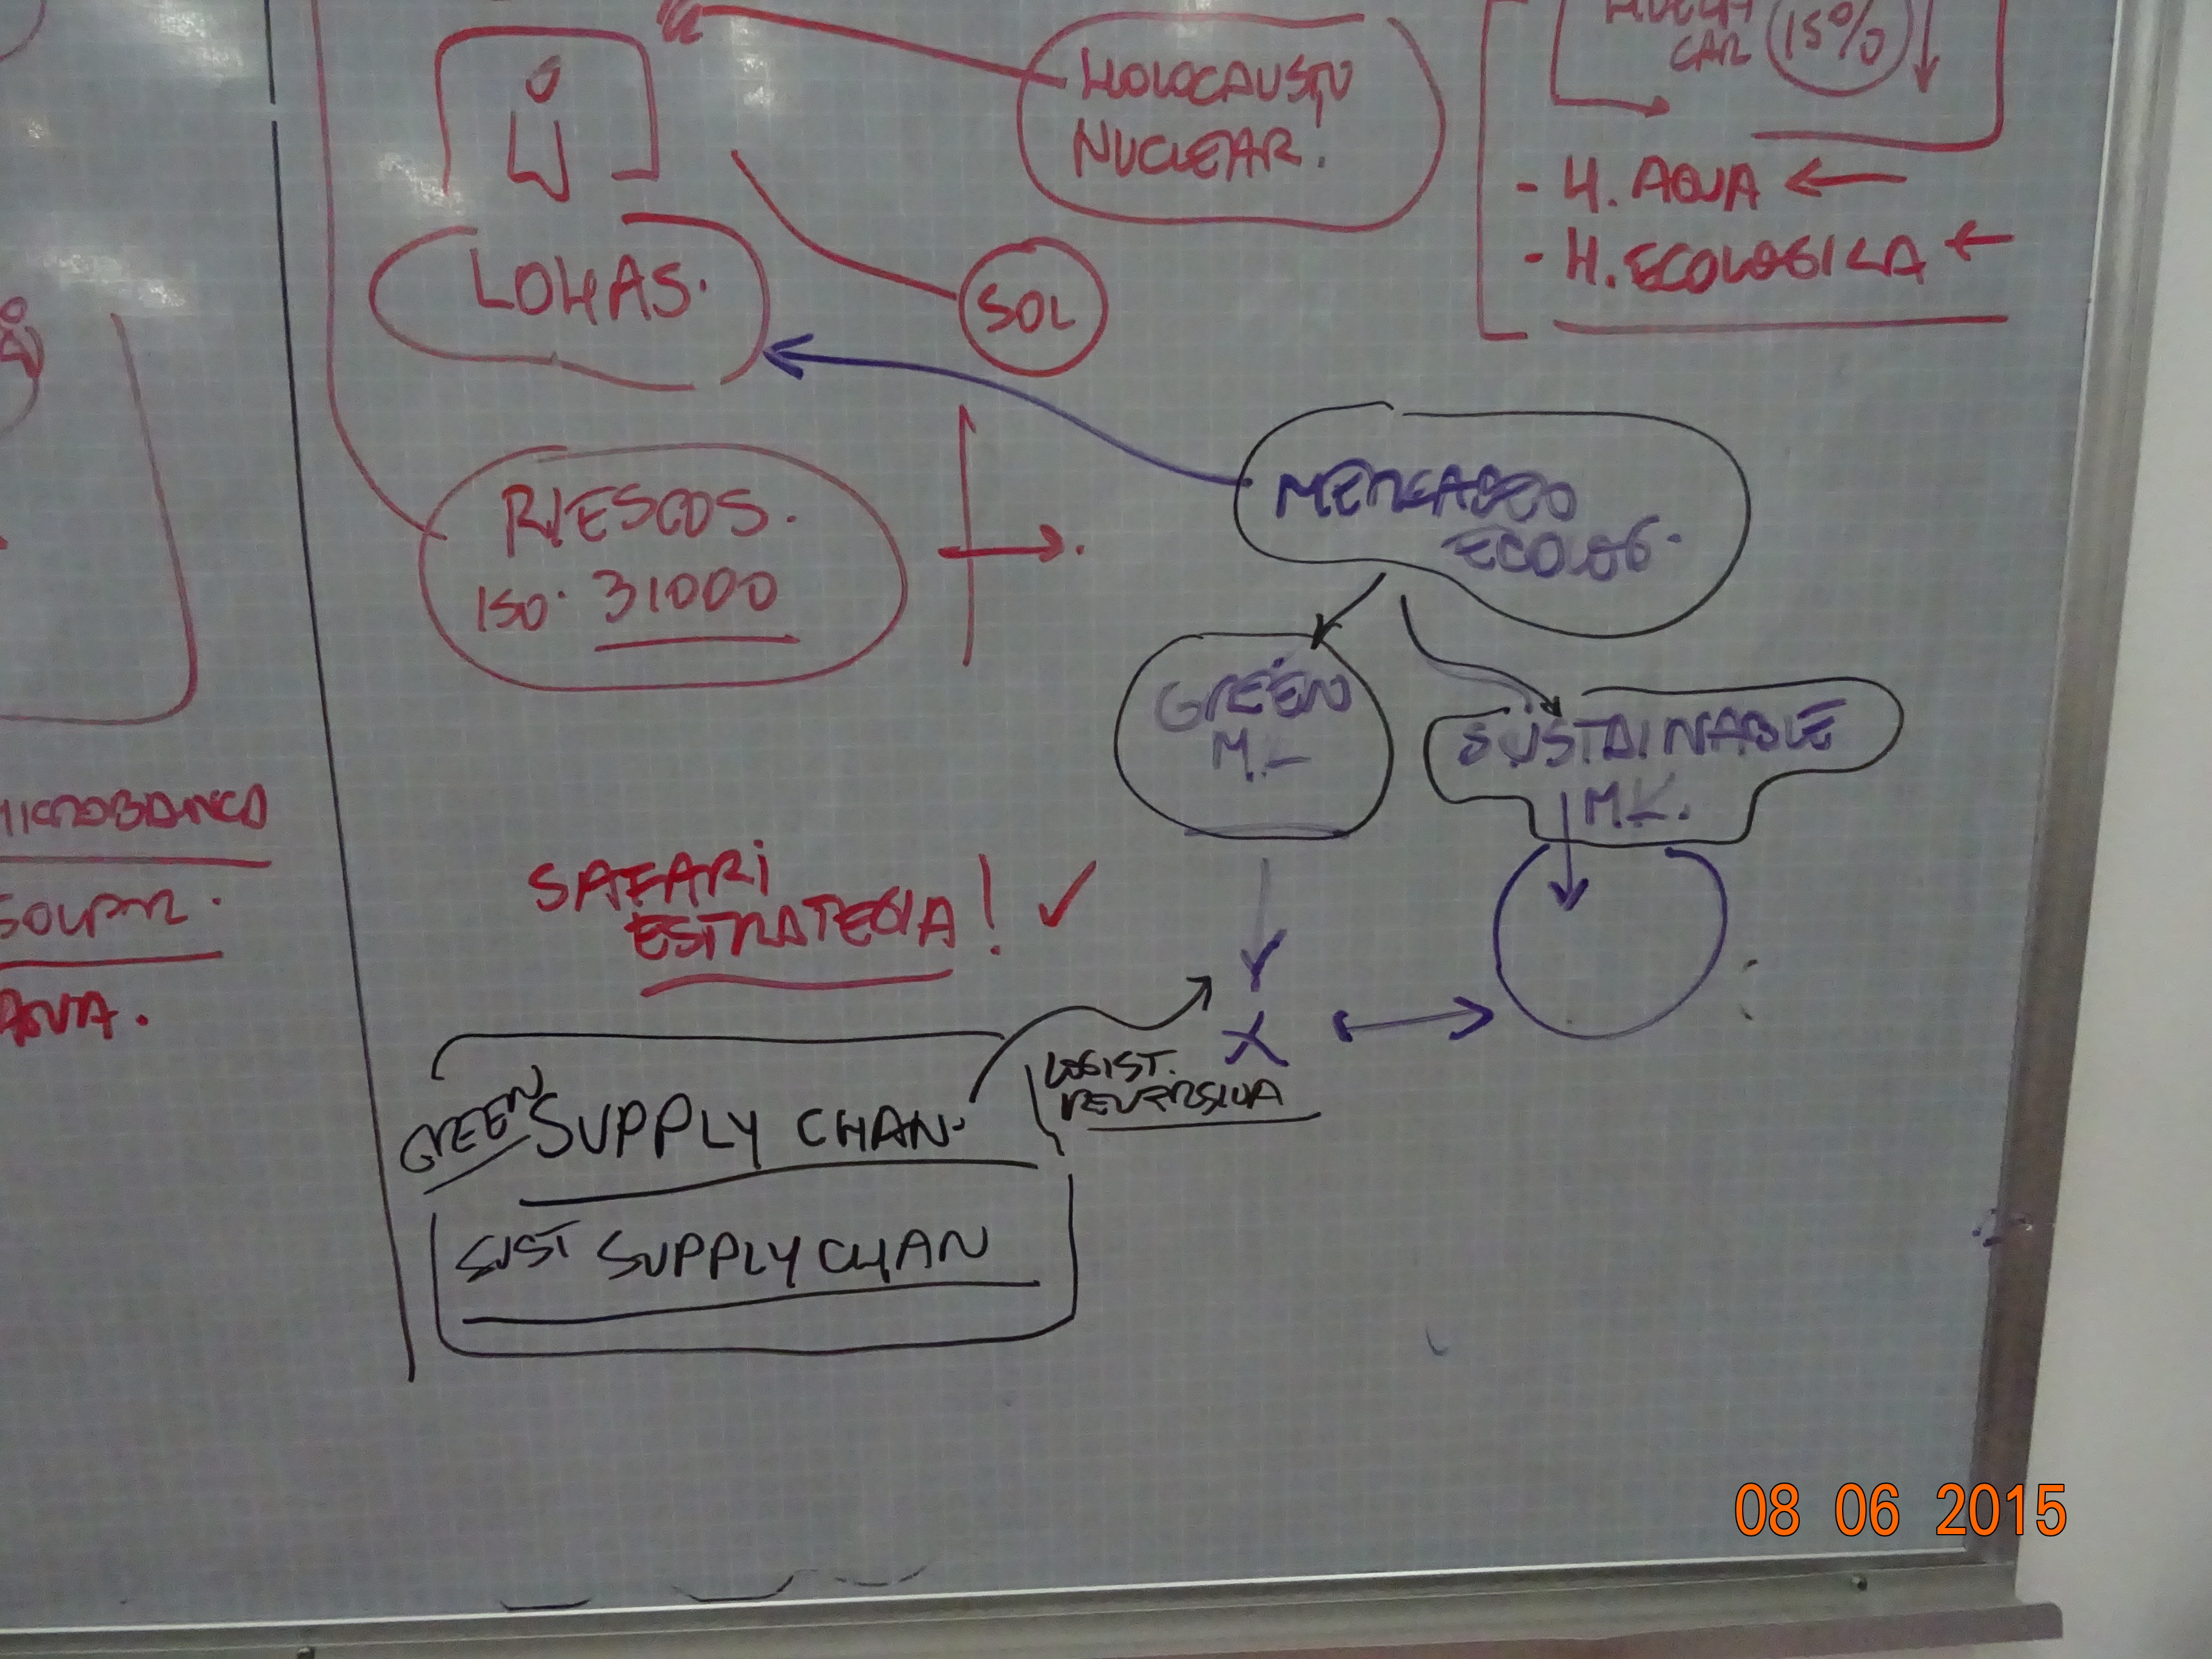 HOLOCAUSTO
NUCLEAR!
CAR 15%
- H. AGUA
- H. ECOLOGICA
LOHAS.
SOL
RIESGOS.
ISO. 31000
MERCADEO
ECOLOG.
GREEN
M.K
SUSTAINABLE
M.K.
MICROBANCO
SAFARI
ESTRATEGIA! ✓
AGUA.
X
LOGIST.
REVERSIVA
GREEN SUPPLY CHAN.
SUST SUPPLY CHAN
08 06 2015